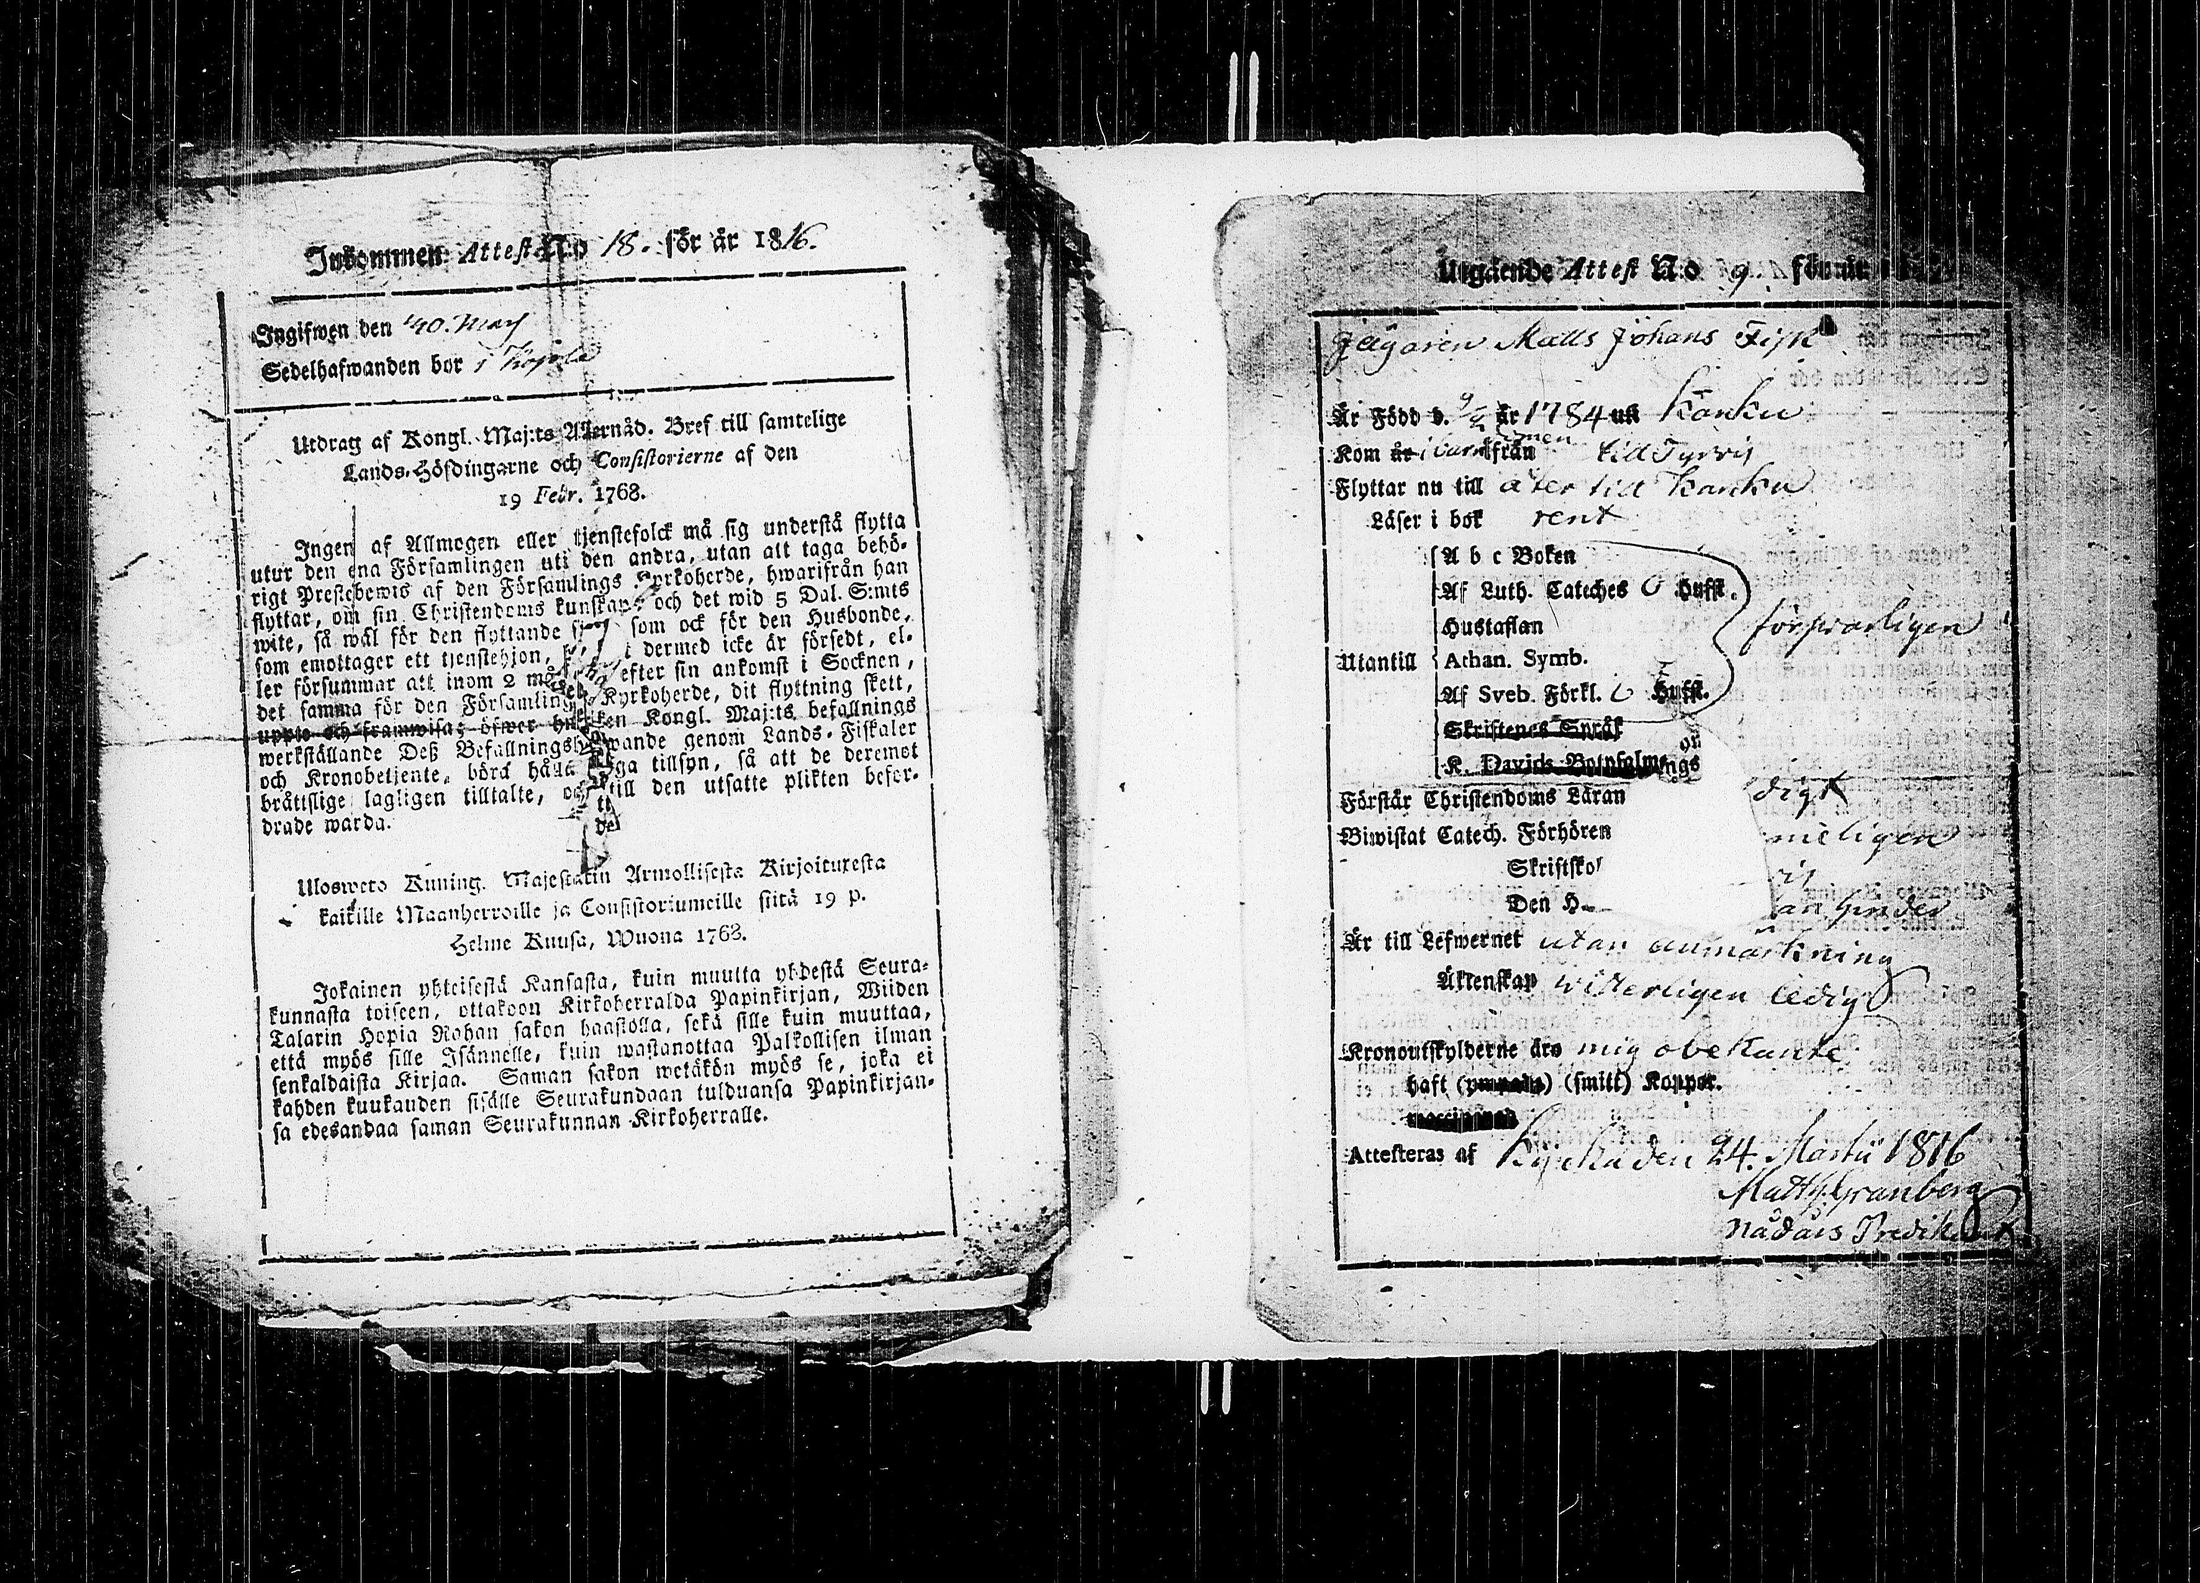 Inkommen Attest N:o 18. för år 1816.
Ingifwen den 40. May
Sedelhafwanden bor i
Utdrag af Kongl. Maj:ts Allernåd. Bref till samtelige
Lands-Höfdingarne och Consistorierne af den
19 Febr. 1768.
Ingen af Allmogen eller tjenstefolck må sig understå flytta
utur den ena Församlingen uti den andra, utan att taga behö-
rigt Prestebewis af den Församlings Kyrkoherde, hwarifrån han
flyttar, om sin Christendoms kunskap och det wid 5 Dal. S:mts
wite, så wäl för den flyttande som ock för den Husbonde,
som emottager ett tjenstehjon, dermed icke är försedt, el-
ler försummar att inom 2 efter sin ankomst i Socknen,
det samma för den Församlings Kyrkoherde, dit flyttning skett,
uppte och framwisa; öfwer hwilken Kongl. Maj:ts befallnings
werkställande Deß Befallningshafwande genom Lands-Fiskaler
och Kronobetjente, böra hålla noga tillsyn, så att de deremot
bråttslige lagligen tilltalte, och till den utsatte plikten befor-
drade warda.
Ulosweto Kuning. Majestätin Armollisesta Kirjoituxesta
kaikille Maanherroille ja Consistoriumeille siitä 19 p.
Helme Kuusa, Wuona 1768.
Jokainen yhteisestä Kansasta, kuin muutta yhdestä Seura-
kunnasta toiseen, ottakoon Kirkoherralda Papinkirjan, Wiiden
Talarin Hopia Rahan sakon haastolla, sekä sille kuin muuttaa,
että myös sille Isännelle, kuin wastanottaa Palkollisen ilman
senkaldaista Kirjaa. Saman sakon wetäkön myös se, joka ei
kahden kuukauden sisälle Seurakundaan tulduansa Papinkirjan-
sa edesandaa saman Seurakunnan Kirkoherralle.
Utgående Attest N:o 9 för år
Jägaren Matts Johans Fisk
Är Född d. 9/2 år 1784 uti Kanku
Kom år i barndomen ifrån till Tyrvis
Flyttar nu till åter till Kanku
Läser i bok rent
A b c Boken
Af Luth. Cateches 6 Hufst.
Hustaflan
försvarligen
Utantill
Athan. Symb.
Af Sveb. Förkl. 6 Hufst.
Skriftenes Språk
K. Davids Botpsalmer
Förstår Christendoms Läran digt
Biwistat Catech. Förhören meligen
Skriftsko
Den H. an hinder
Är till Lefwernet utan anmärkning
Äktenskap witterligen ledig
Kronoutskylderne äro mig obekante
haft (smitt) Koppor.
Attesteras af Kyrkia den 24. Martii 1816
Matth. Granberg
Nådårs Predikant